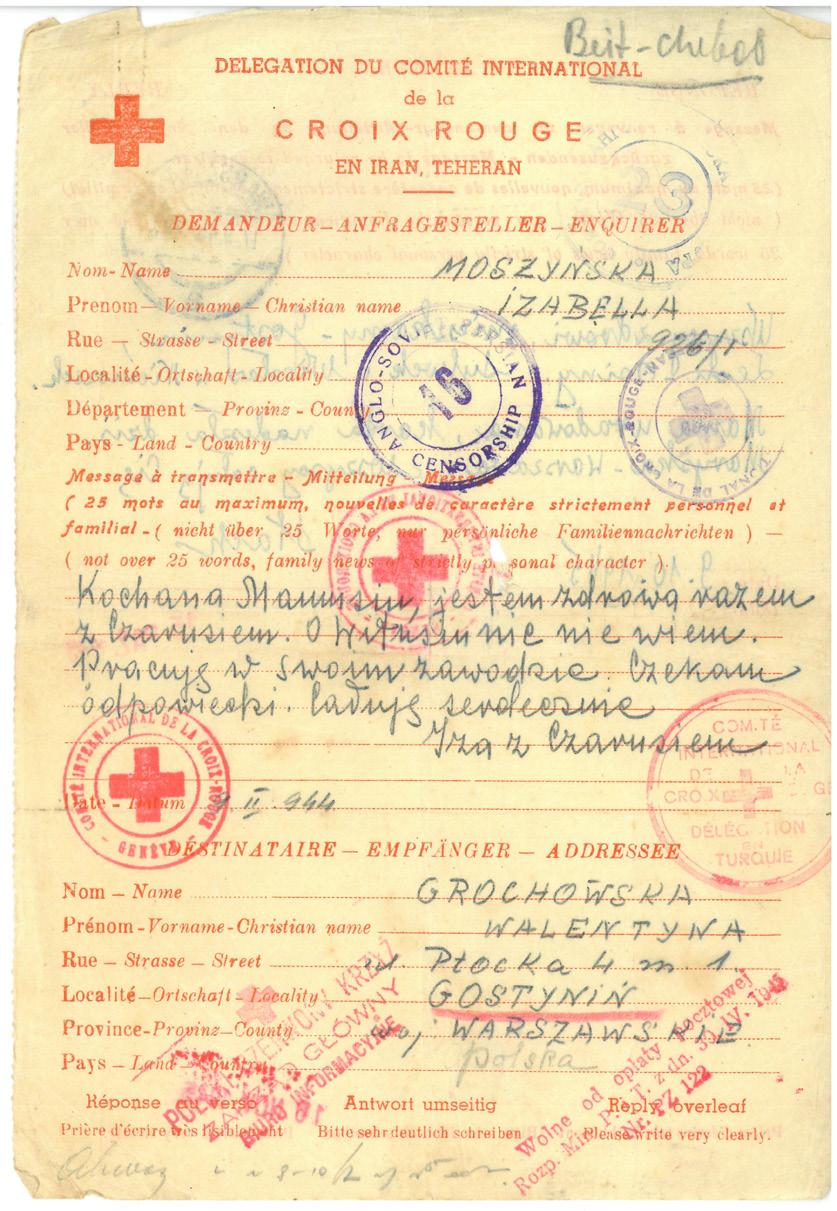 Beit-chebab
DELEGATION DU COMITÉ INTERNATIONAL
de la
CROIX ROUGE
EN IRAN, TEHERAN
DEMANDEUR — ANFRAGESTELLER — ENQUIRER
Nom - Name MOSZYNSKA
Prenom — Vorname — Christian name IZABELLA
Rue — Strasse - Street 926/1
Localité - Ortschaft - Locality
Département - Provinz - County
Pays - Land - Country
ANGLO-SOVIET-PERSIAN CENSORSHIP
16
Message à transmettre - Mitteilung - Message
( 25 mots au maximum, nouvelles de caractère strictement personnel et
familial - ( nicht über 25 Worte, nur persönliche Familiennachrichten ) —
( not over 25 words, family news of strictly personal character ).
Kochana Mamusiu, jestem zdrowa razem
z Czarusiem. O Witusiu nic nie wiem.
Pracuję w swoim zawodzie. Czekam
odpowiedzi. Całuję serdecznie
Iza z Czarusiem
COMITÉ INTERNATIONAL DE LA CROIX-ROUGE - GENÈVE
COMITÉ
INTERNATIONAL
DE LA
CROIX ROUGE
DÉLÉGATION
EN
TURQUIE
Date - Datum 9 II 944
DESTINATAIRE — EMPFÄNGER — ADDRESSEE
Nom — Name GROCHOWSKA
Prénom - Vorname - Christian name WALENTYNA
Rue — Strasse — Street ul Płocka 4 m. 1.
Localité — Ortschaft — Locality GOSTYNIŃ
Province - Provinz - County woj WARSZAWSKIE
Pays — Land — Country Polska
POLSKI CZERWONY KRZYŻ
GŁÓWNY
BIURO INFORMACYJNE
Wolne od opłaty pocztowej
Rozp. Min. P. i T. z dn. 30. IV. 1945
Nr. PZ 122
Réponse au verso Antwort umseitig Reply overleaf
Prière d'écrire très lisiblement Bitte sehr deutlich schreiben Please write very clearly.